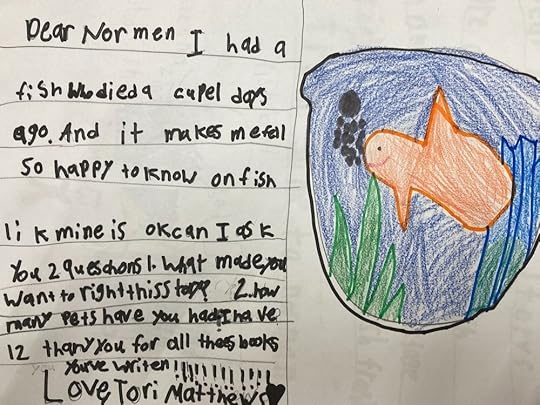 Dear Normen I had a
fish who died a cupel days
ago. And it makes me fell
so happy to know on fish
lik mine is ok can I ask
You 2 queschons 1. what made you
want to right thiss tory? 2. how
many pets have you had? I have
12 thank you for all thees books
You've writen!!!!!!!!!!
Love Tori Matthews